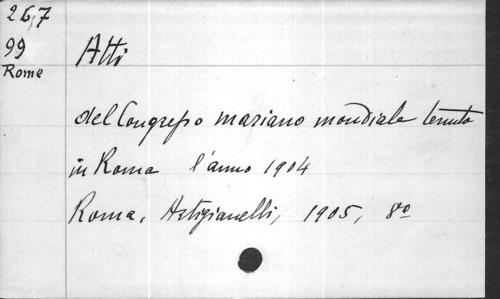 26,7
99
Rome
Atti
del Congresso mariano mondiale tenuto
in Roma l'anno 1904
Roma, Artigianelli, 1905, 8º